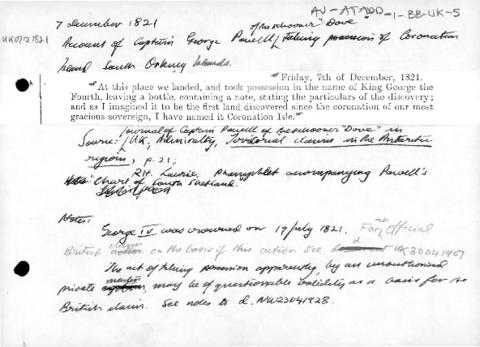 AU-ATADD-1-BB-UK-5
7 december 1821
of the schooner "Dove"
UK07121821
Account of Captain George Powell / taking possession of Coronation
Island South Orkney Islands.
"Friday, 7th of December, 1821.
"At this place we landed, and took possession in the name of King George the
Fourth, leaving a bottle, containing a note, stating the particulars of the discovery;
and as I imagined it to be the first land discovered since the coronation of our most
gracious sovereign, I have named it Coronation Isle."
Journal of Captain Powell of the schooner "Dove" in
Source: / UK, Admiralty, Territorial claims in the Antarctic
regions, p. 21;
R.H. Laurie. Pamphlet accompanying Powell's
"Chart of South Shetland.
Notes:
George IV was crowned on 19 July 1821. For Official
British claim on the basis of this action see d. UK30041907
The act of taking possession apparently, by an unauthorised
private mariner may be of questionable validity as a basis for the
British claim. See notes to d. NW23041928.